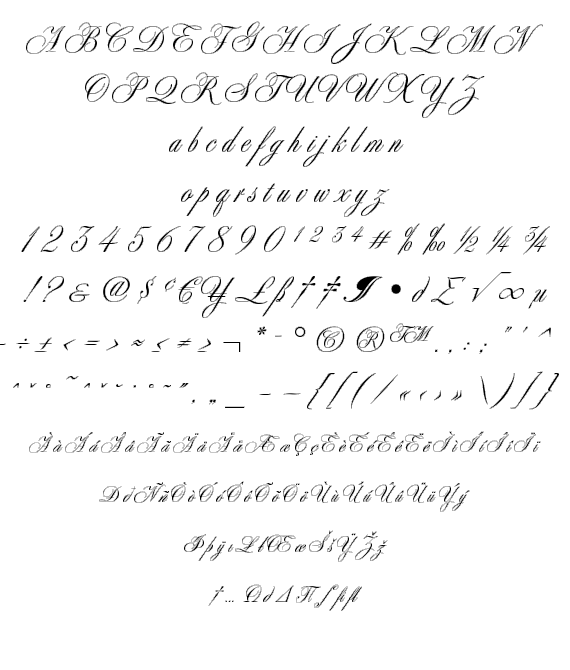 A B C D E F G H I J K L M N
O P Q R S T U V W X Y Z
a b c d e f g h i j k l m n
o p q r s t u v w x y z
1 2 3 4 5 6 7 8 9 0 ¹ ² ³ ⁴ # % ‰ ½ ¼ ¾
! ? & @ $ ¢ € ¥ £ ß † ‡ ¶ • ∂ Σ √ ∞ µ
- ÷ ± < = > ≈ ≤ ≠ ≥ ¬ * - ° © ® ™ . , : ; " ' ^
^ ˇ ° ~ ^ ˇ ˘ · ° ~ ˝ . „ _ – — { [ ( / « ‹ › » \ ) ] }
À à Á á Â â Ã ã Ä ä Å å Æ æ Ç ç È è É é Ê ê Ë ë Ì ì Í í Î î Ï ï
Ð ð Ñ ñ Ò ò Ó ó Ô ô Õ õ Ö ö Ù ù Ú ú Û û Ü ü Ý ý
Þ þ ÿ ı Ł ł Œ œ Š š Ÿ Ž ž
† … Ω ∂ Δ Π ∫ ﬁ ﬂ